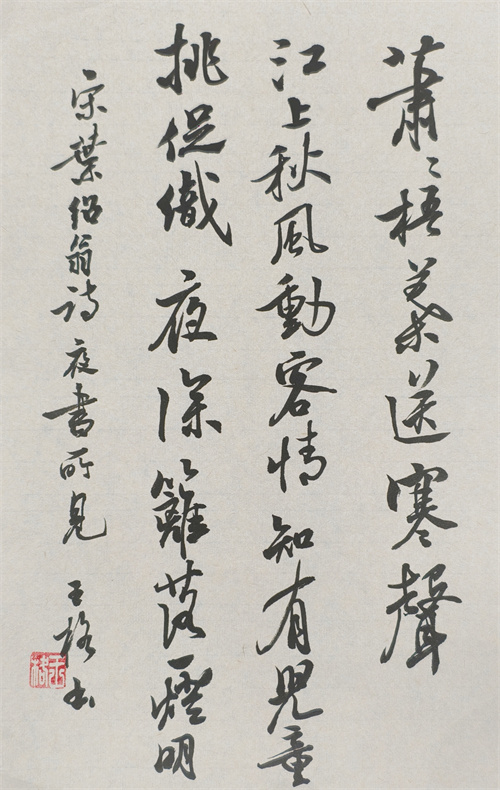 蕭〻梧葉送寒聲
江上秋風動客情知有兒童
挑促織夜深籬落一燈明
宋葉紹翁詩夜書所見 王格书